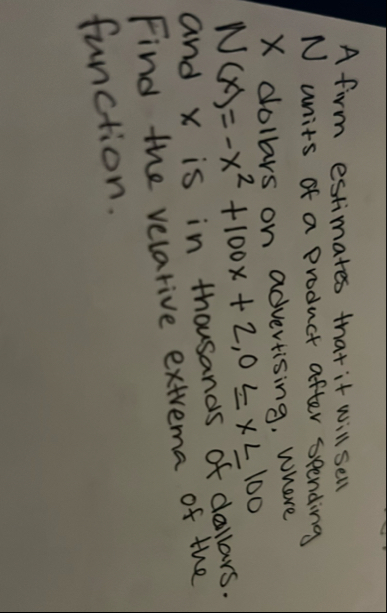 A firm estimates that it will sell
N units of a product after spending
X dollars on advertising. Where
N(x)=-x² +100x + 2, 0 ≤ x ≤ 100
and x is in thousands of dallars.
Find the relative extrema of the
function.